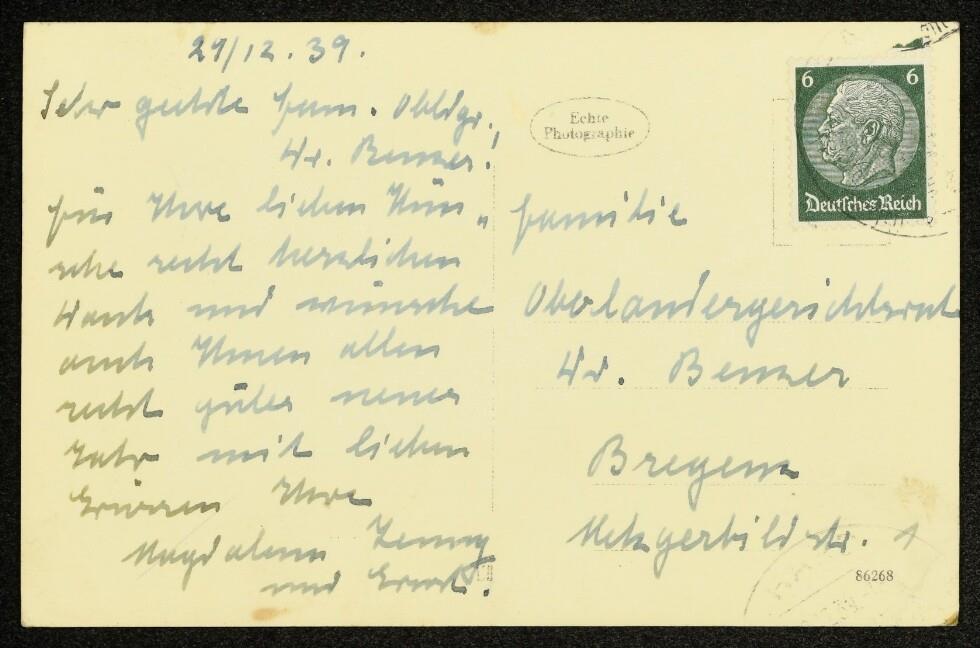 29/12.39.
Sehr geehrte Fam. Obldgr.
Dr. Benzer!
für Ihre lieben Wün„
sche recht herzlichen
Dank und wünsche
auch Ihnen allen
recht gutes neues
Jahr mit lieben
Grüssen Ihre
Magdalena Zenny
und Ernst.
Echte
Photographie
6 6
Deutsches Reich
Familie
Oberlandergerichtsrat
Dr. Benzer
Bregenz
Metzgerbildstr. 1
86268